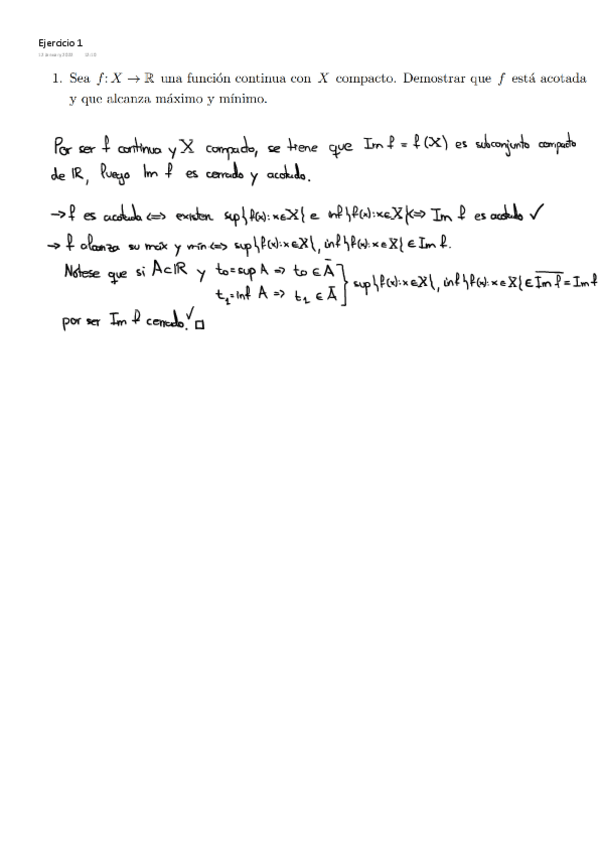 Ejercicio 1
1. Sea f: X → ℝ una función continua con X compacto. Demostrar que f está acotada
y que alcanza máximo y mínimo.
Por ser f continua y X compacto, se tiene que Im f = f(X) es subconjunto compacto
de ℝ, luego Im f es cerrado y acotado.
→ f es acotada ⟺ existen sup{f(x): x∈X} e inf{f(x): x∈X} ⟺ Im f es acotado ✓
→ f alcanza su max y min ⟺ sup{f(x): x∈X}, inf{f(x): x∈X} ∈ Im f.
Nótese que si A⊂ℝ y t₀ = sup A ⇒ t₀ ∈ Ā
t₁ = inf A ⇒ t₁ ∈ Ā } sup{f(x): x∈X}, inf{f(x): x∈X} ∈ \overline{Im f} = Im f
por ser Im f cerrado. ✓ □